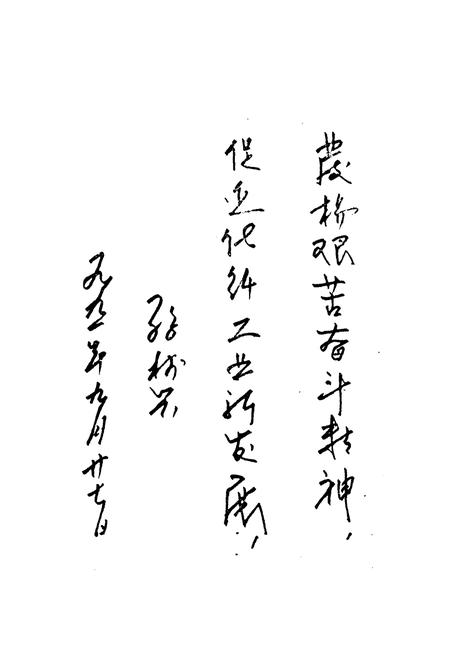 發扬艰苦奋斗精神，
促进化纤工业新发展！
孙
一九九一年九月廿七日